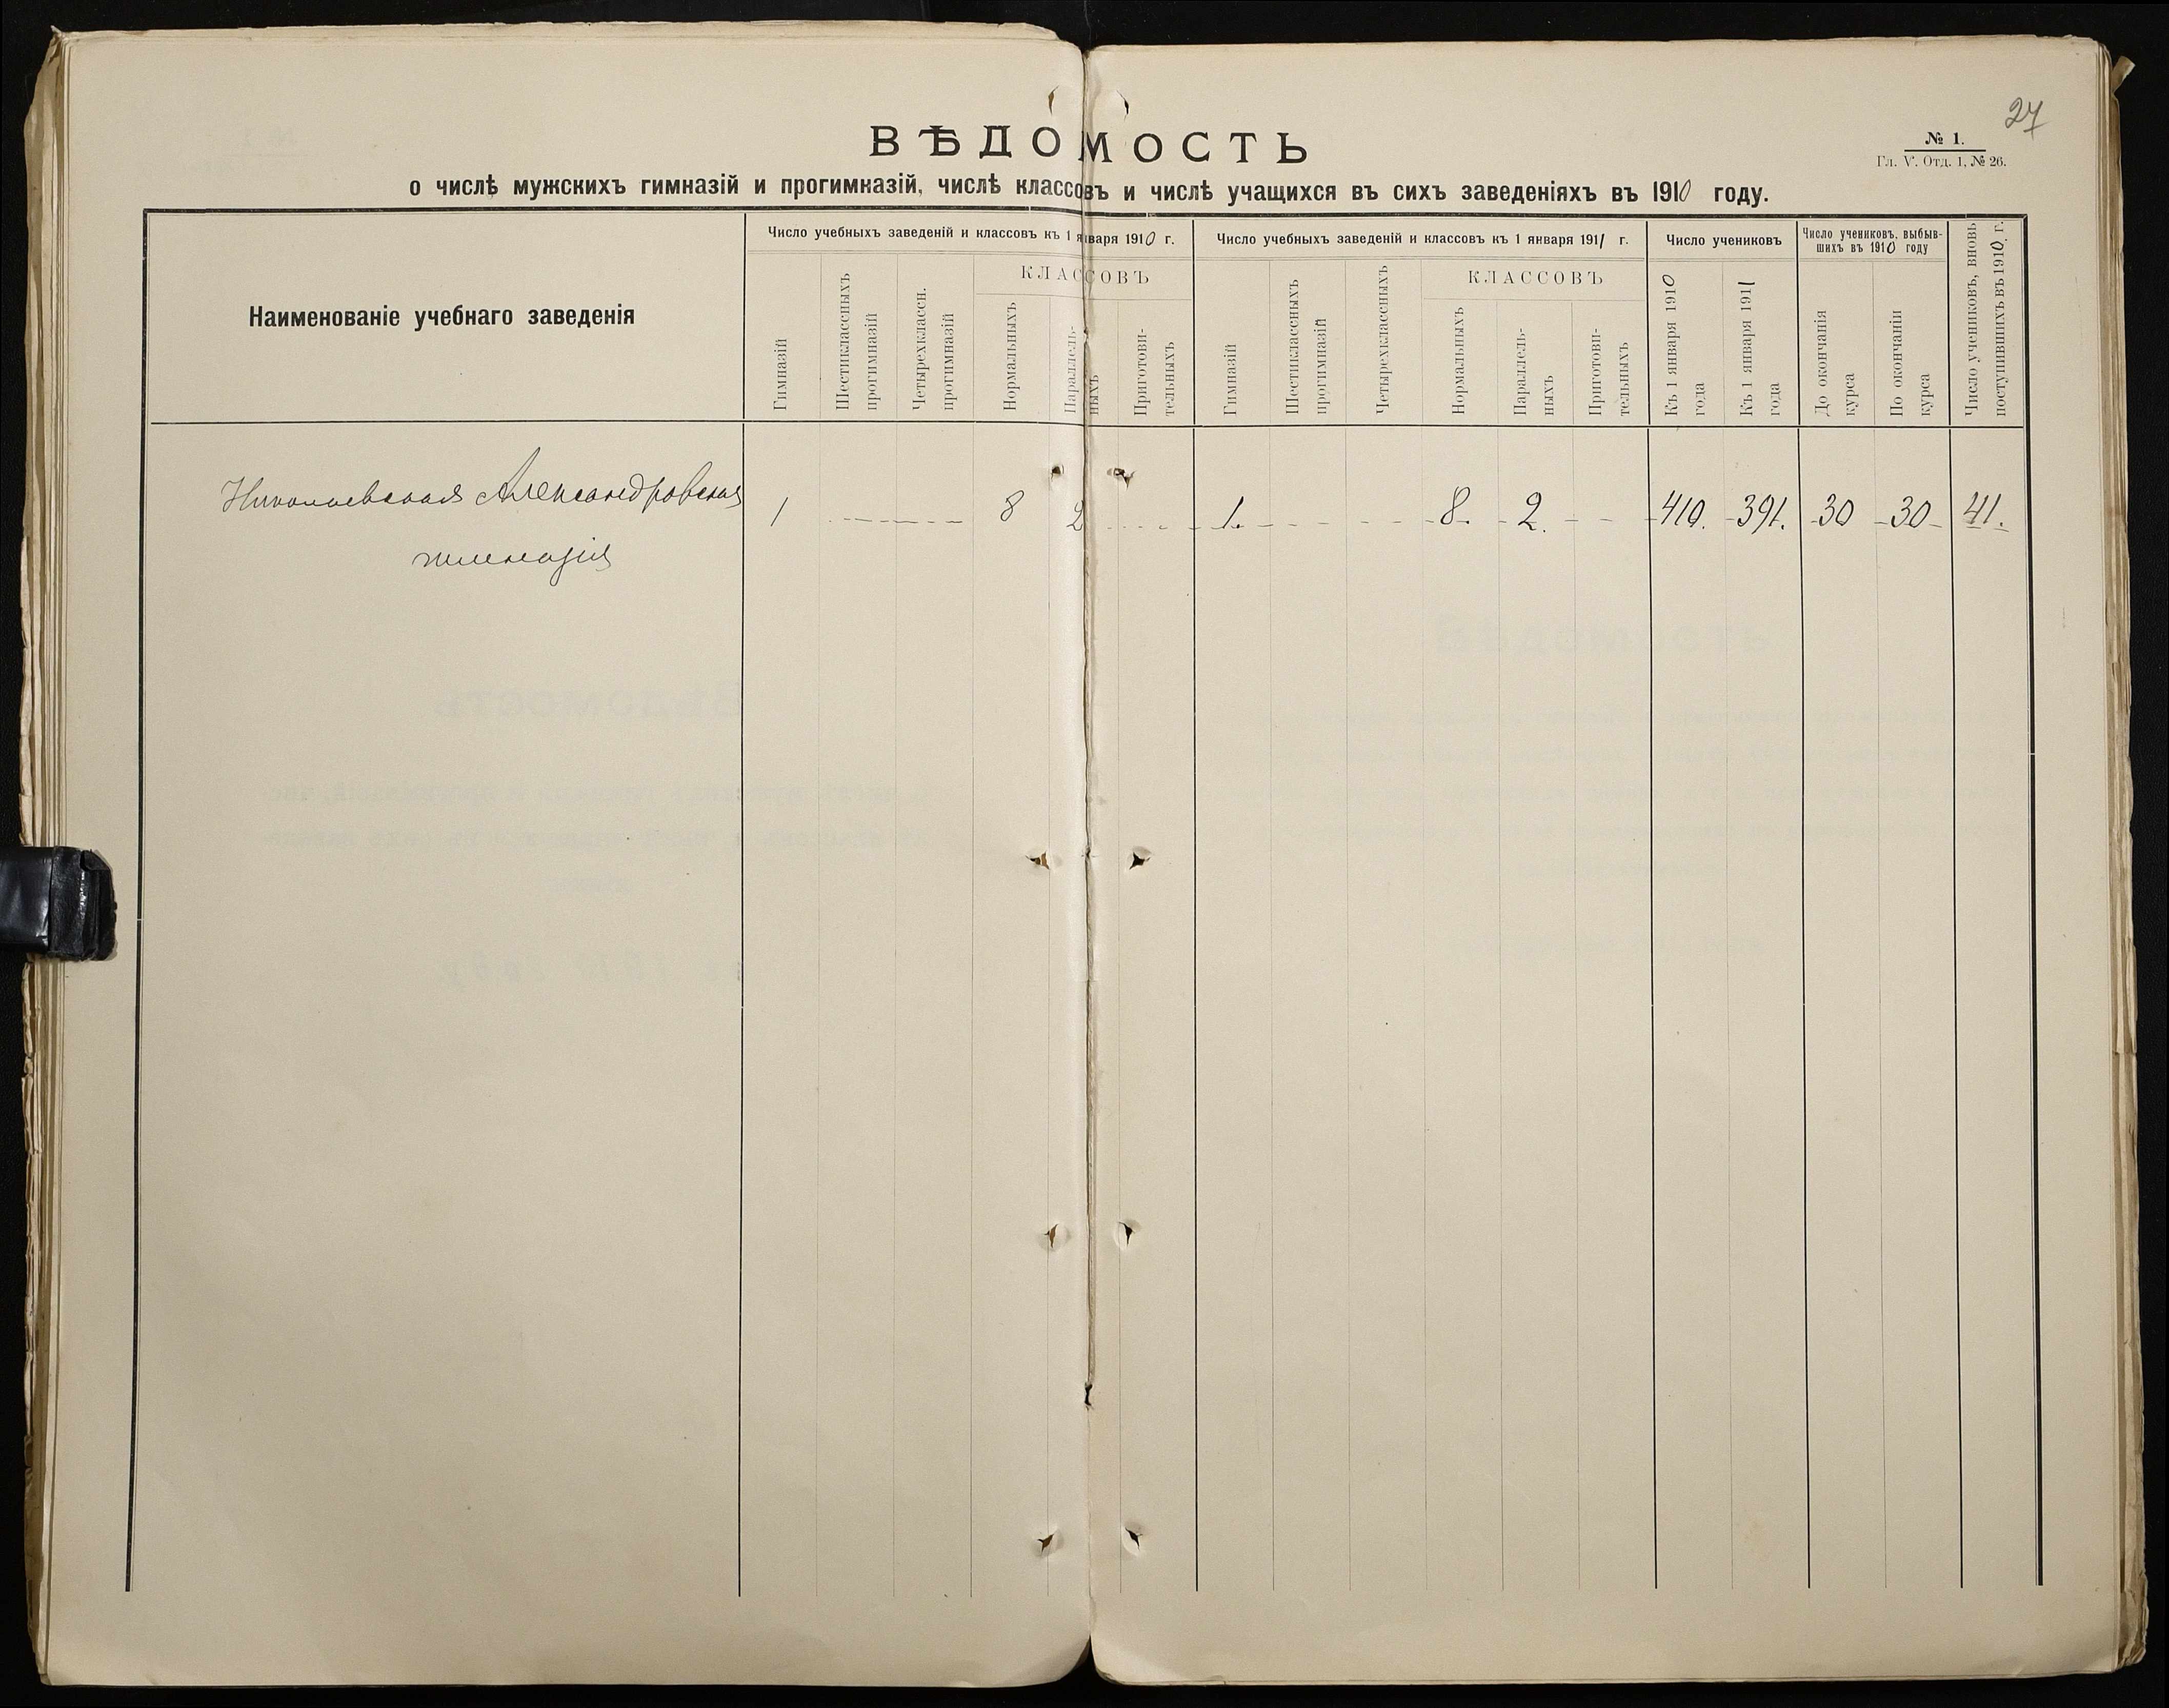 27
ВѢДОМОСТЬ
№ 1.
Гл. V. Отд. 1, № 26.
о числѣ мужскихъ гимназій и прогимназій, числѣ классовъ и числѣ учащихся въ сихъ заведеніяхъ въ 1910 году.
Наименованіе учебнаго заведенія
Число учебныхъ заведеній и классовъ къ 1 января 1910 г.
Гимназій
Шестиклассныхъ
прогимназій
Четырехклассн.
прогимназій
КЛАССОВЪ
Нормальныхъ
Параллель-
ныхъ
Приготови-
тельныхъ
Число учебныхъ заведеній и классовъ къ 1 января 1911 г.
Гимназій
Шестиклассныхъ
прогимназій
Четырехклассныхъ
КЛАССОВЪ
Нормальныхъ
Параллель-
ныхъ
Приготови-
тельныхъ
Число учениковъ
Къ 1 января 1910
года
Къ 1 января 1911
года
Число учениковъ, выбыв-
шихъ въ 1910 году
До окончанія
курса
По окончаніи
курса
Число учениковъ, вновь
поступившихъ въ 1910. г.
Николаевская Александровская 1 8 2 1. 8. 2. 410. 391. 30 30 41.
гимназія